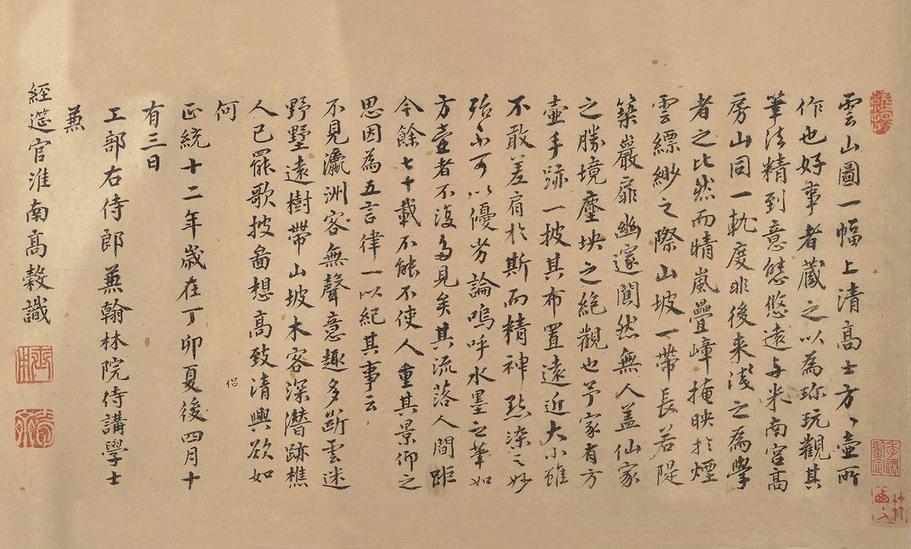 雲山圖一幅上清高士方〻壺所
作也好事者藏之以為珎玩觀其
筆法精到意態悠遠与米南宮高
房山同一軌度非後来淺〻為學
者之比然而晴嵐疊嶂掩映扵煙
雲縹緲之際山坡一帶長若隄
築巖扉幽邃闃然無人盖仙家
之勝境塵埃之絶觀也予家有方
壺手跡一披其布置遠近大小雖
不敢差肩扵斯而精神㸃染之妙
殆不可以優劣論嗚呼水墨之筆如
方壺者不復多見矣其流落人間距
今餘七十載不能不使人重其景仰之
思因為五言律一以紀其事云
不見瀛洲客無聲意趣多斷雲迷
野墅遠樹帶山坡木客深潛跡樵
侶
人已罷歌披啚想高致清興欲如
何
正統十二年歲在丁卯夏後四月十
有三日
工部右侍郎兼翰林院侍講學士
兼
經筵官淮南高穀識